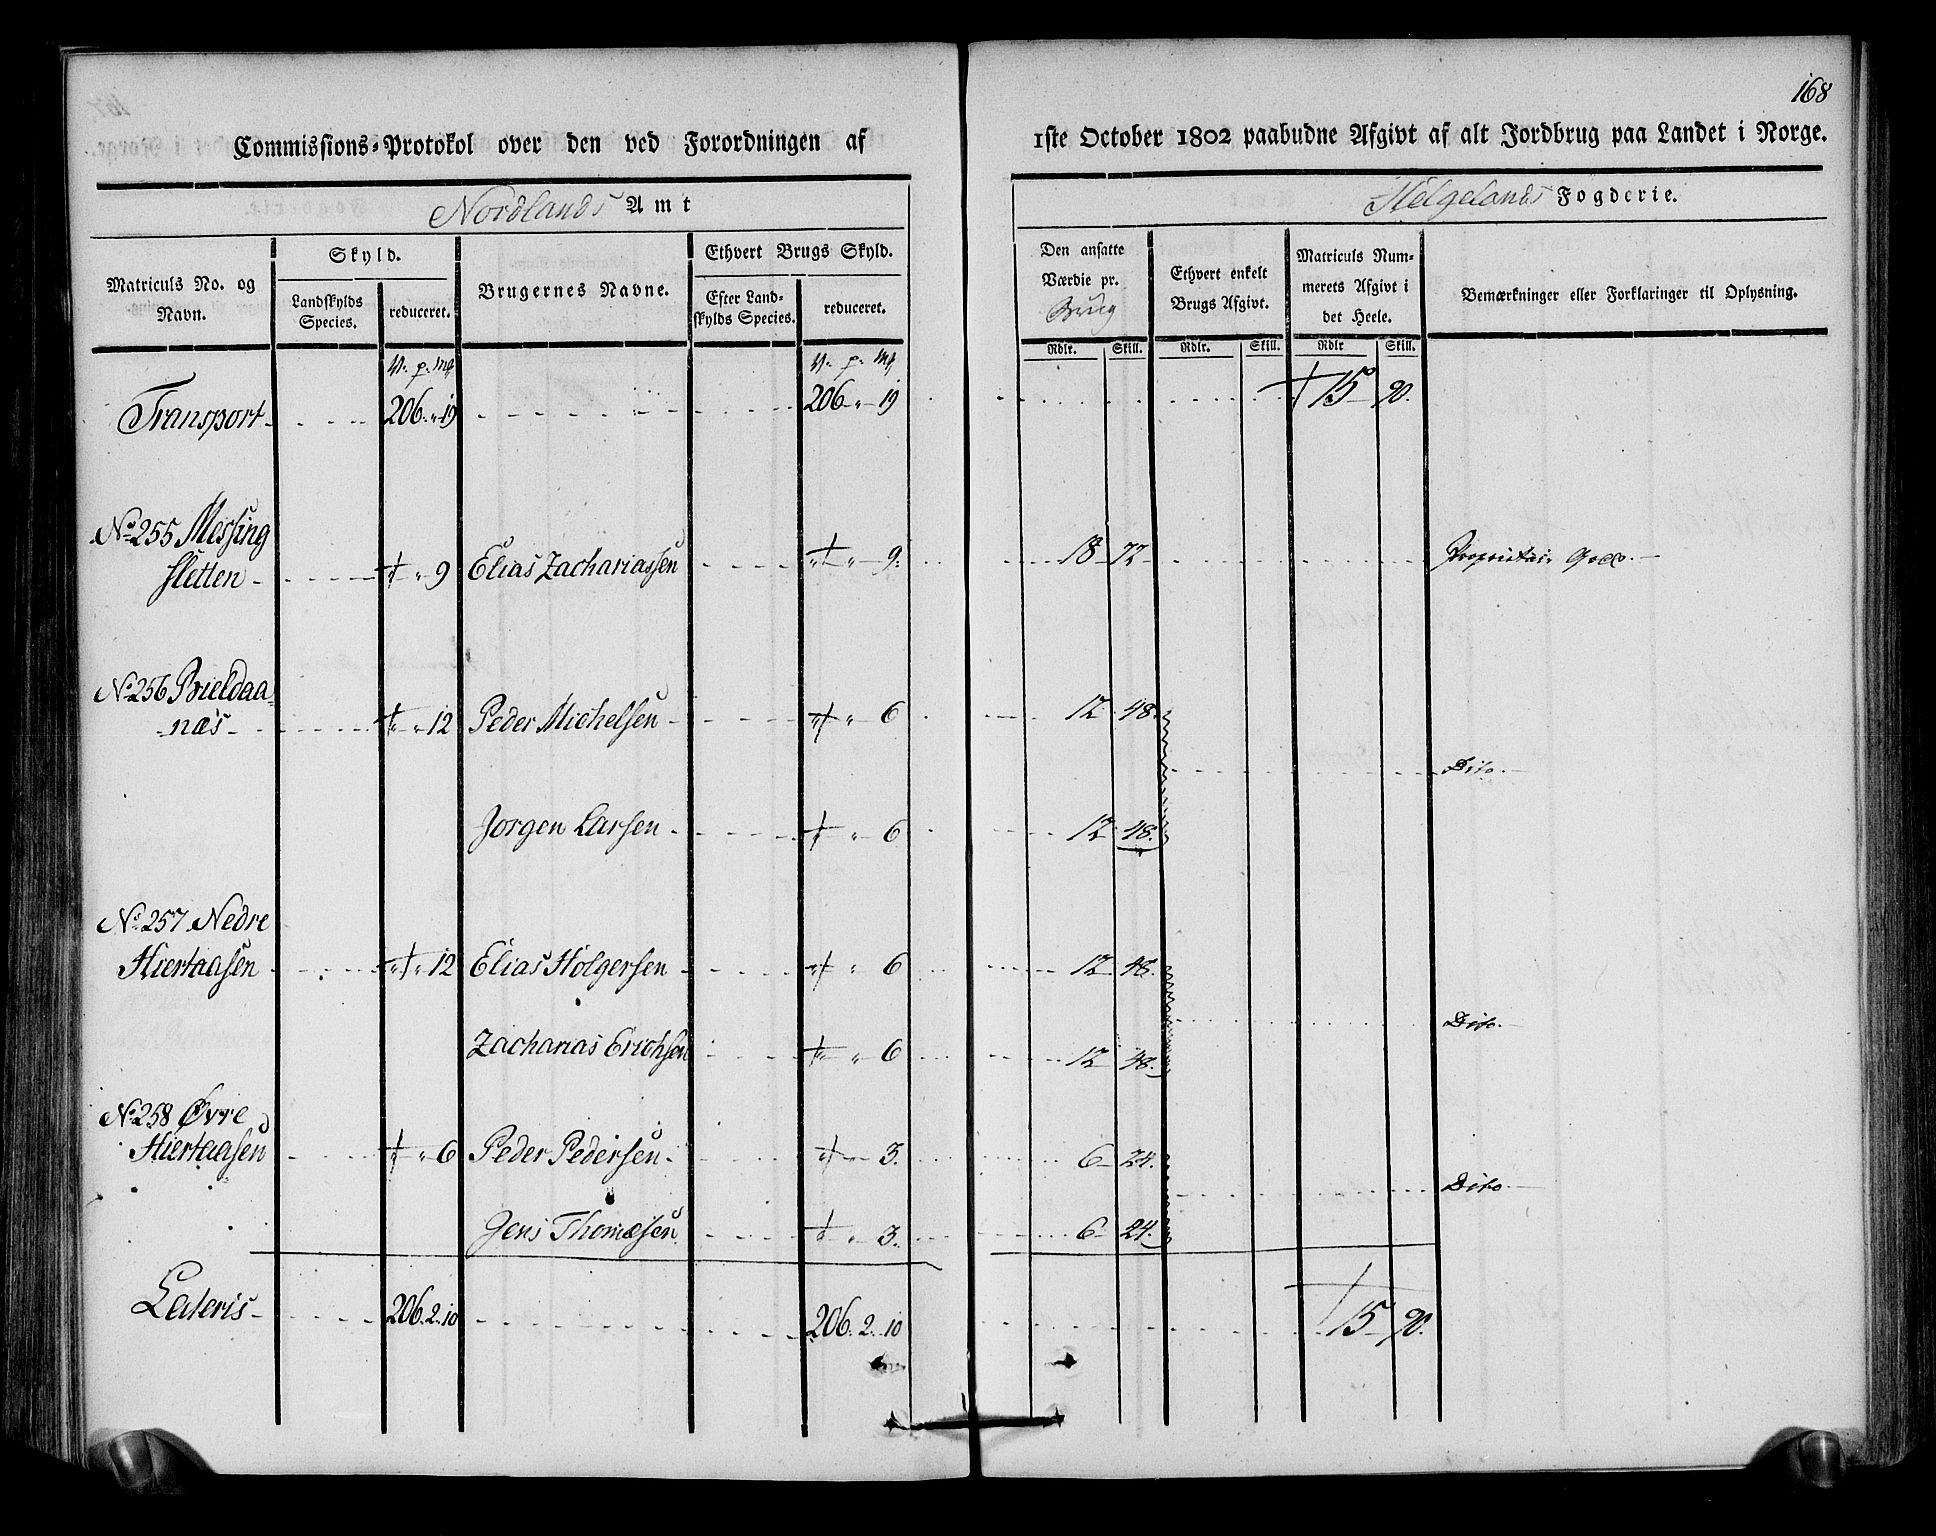 168
Commissions-Protokol over den ved Forordningen af
1ste October 1802 paabudne Afgivt af alt Jordbrug paa Landet i Norge.
Nordlands Amt
Helgelands Fogderie.
Matriculs No. og Navn.
Skyld.
Landskylds Species.
reduceret.
Brugernes Navne.
Ethvert Brugs Skyld.
Efter Landskylds Species.
reduceret.
Den ansatte Værdie pr. Brug
Ethvert enkelt Brugs Afgivt.
Matriculs Nummerets Afgivt i det Heele.
Bemærkninger eller Forklaringer til Oplysning.
Rdlr. Skill. Rdlr. Skill. Rdlr Skill.
V. p. mk V. p. mk
Transport 206 " 19 206 " 19 15 90.
No. 255 Messing
sletten " 9 Elias Zachariassen " 9. 18 72 Proprietair Gods.
No. 256 Bieldaa
næs " 12 Peder Michelsen " 6 12 48.
Dito.
Jørgen Larsen " 6 12 48.
No. 257 Nedre
Hiertaasen " 12 Elias Holgersen " 6 12 48.
Dito.
Zacharias Erichsen " 6 12 48.
No. 258 Øvre
Hiertaasen " 6 Peder Pedersen " 3. 6 24.
Dito.
Jens Thomæsen " 3. 6 24.
Lateris 206. 2. 10 206. 2. 10 15 90.